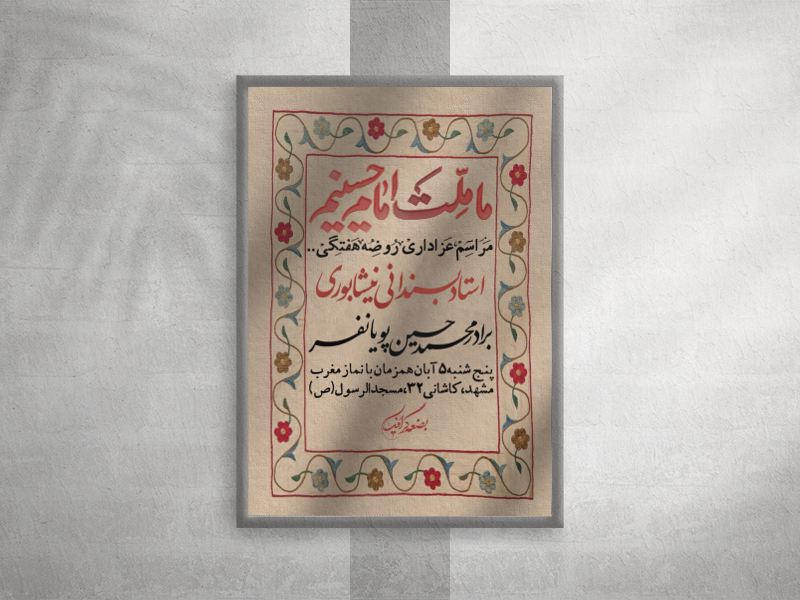 ما ملّت امام حسینیم
مراسم عزاداری روضه هفتگی..
استاد بسندانی نیشابوری
برادر محمد حسین پویانفر
پنج شنبه ۵ آبان همزمان با نماز مغرب
مشهد، کاشانی ۳۲، مسجد الرسول (ص)
بضعه گرافیک